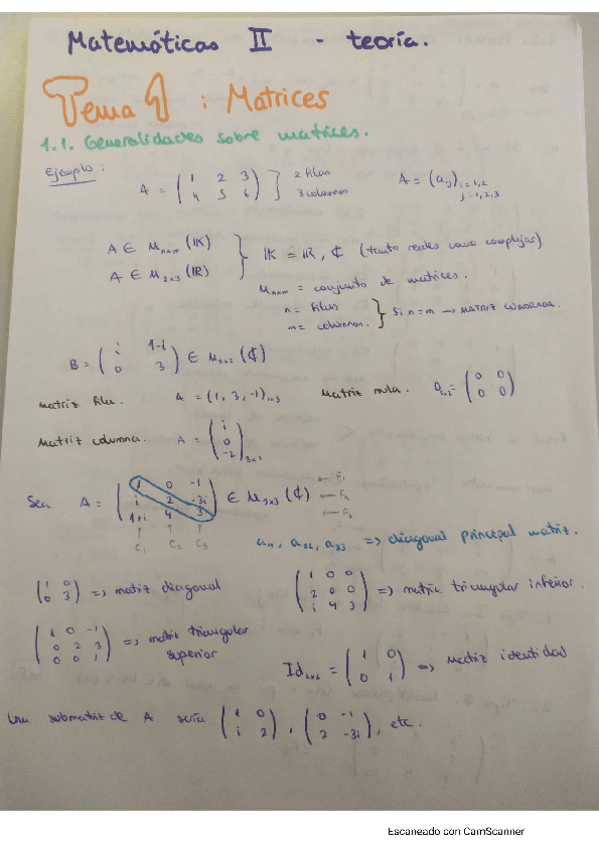 Matemáticas II - teoría.
Tema 1 : Matrices
1.1. Generalidades sobre matrices.
Ejemplo :
A = ( 1 2 3 / 4 5 6 ) } 2 filas 3 columnas A = (aij) i=1,2 j=1,2,3
A ∈ Mnxm (IK) } IK = IR, ₵ (tanto reales como complejas)
A ∈ M2x3 (IR)
Mnxm = conjunto de matrices.
n = filas } Si n=m → MATRIZ CUADRADA.
m = columnas.
B = ( i 1-i / 0 3 ) ∈ M2x2 (₵)
Matriz fila. A = (1, 3, -1)1x3 Matriz nula. O2x2 = ( 0 0 / 0 0 )
Matriz columna. A = ( i / 0 / -2 )3x1
Sea A = ( 1 0 -1 / i 2 -3i / 1+i 4 3 ) ∈ M3x3 (₵)
C1 C2 C3
a11, a22, a33 => diagonal principal matriz.
( 1 0 / 0 3 ) => matriz diagonal
( 1 0 0 / 2 0 0 / i 4 3 ) => matriz triangular inferior.
( 1 0 -1 / 0 2 3 / 0 0 1 ) => matriz triangular superior
Id2x2 = ( 1 0 / 0 1 ) => Matriz identidad
Una submatriz de A sería ( 1 0 / i 2 ), ( 0 -1 / 2 -3i ), etc.
Escaneado con CamScanner